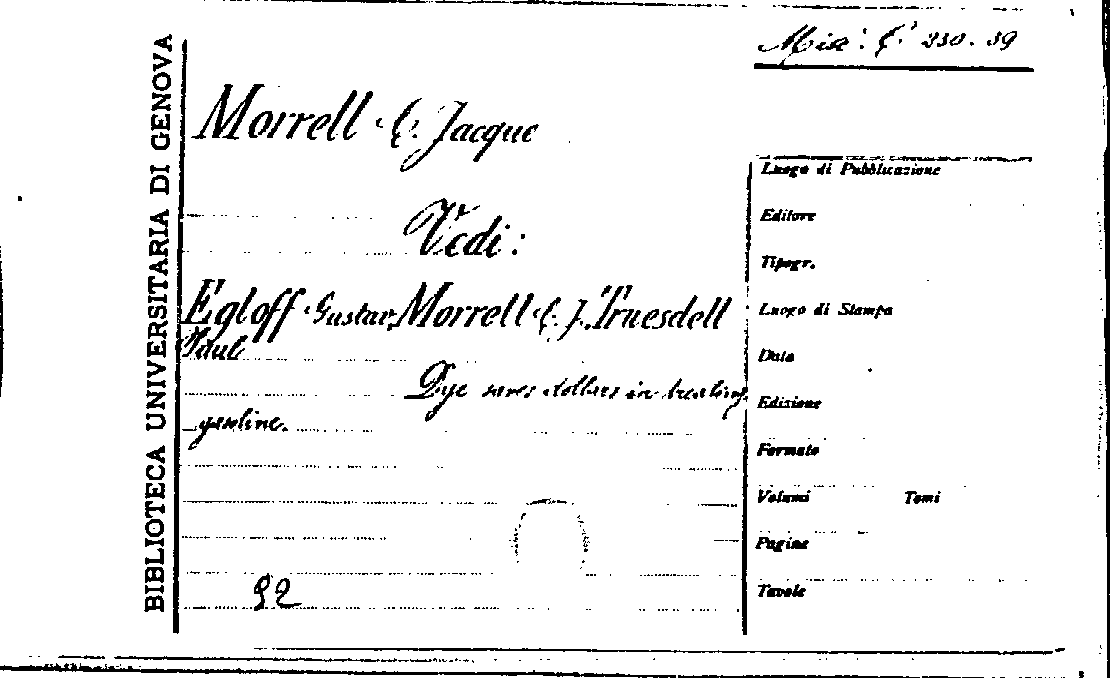 Misc. C. 230.39
BIBLIOTECA UNIVERSITARIA DI GENOVA
Morrell C. Jacque
Vedi:
Egloff Gustav, Morrell C. J. Truesdell
Paul
Dye saves dollars in treating
gasoline.
92
Luogo di Pubblicazione
Editore
Tipogr.
Luogo di Stampa
Data
Edizione
Formato
Volumi Tomi
Pagine
Tavole